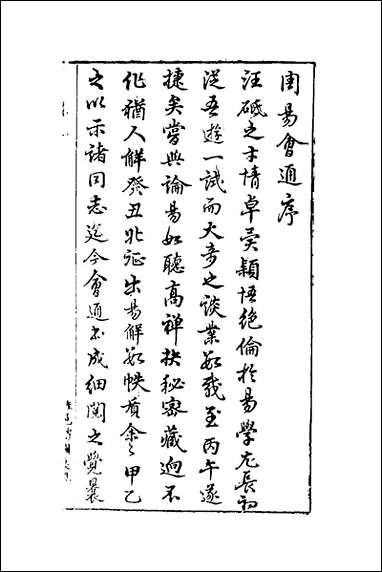 周易會通序
汪砥之才情卓犖穎悟絕倫於易學尤長初
從吾遊一試而大奇之談業數載至丙午遂
捷矣嘗與論易如聽高禪抉秘密藏迥不
作猶人解癸丑北征出易解數帙質余々甲乙
之以示諸同志迄今會通書成細閱之覺曩